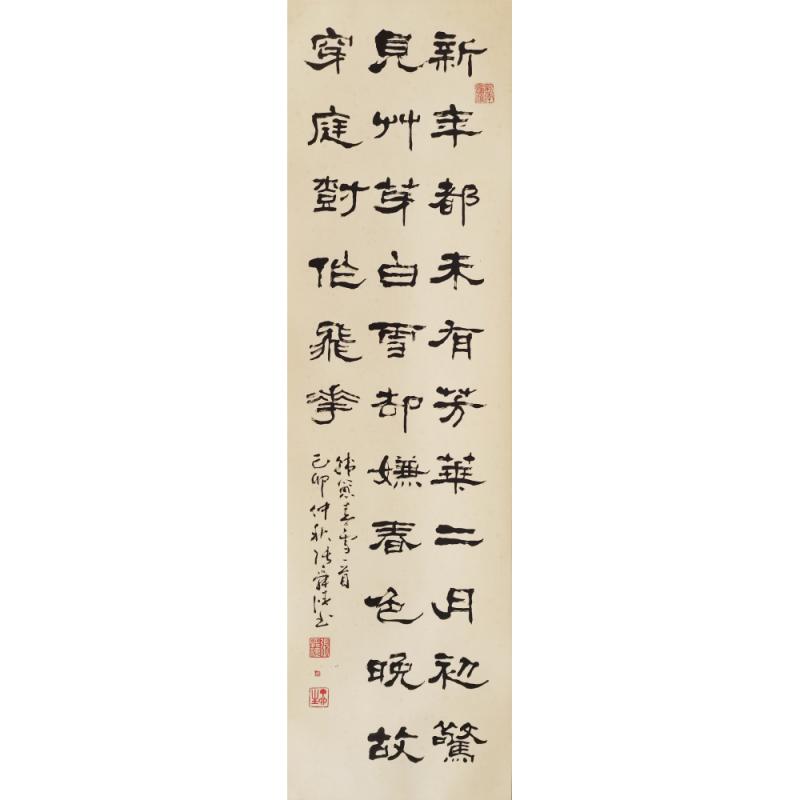 新年都未有芳華二月初驚
見艸芽白雪却嫌春色晚故
穿庭尌作飛花
韓愈春雪一首
己卯仲秋張舜書